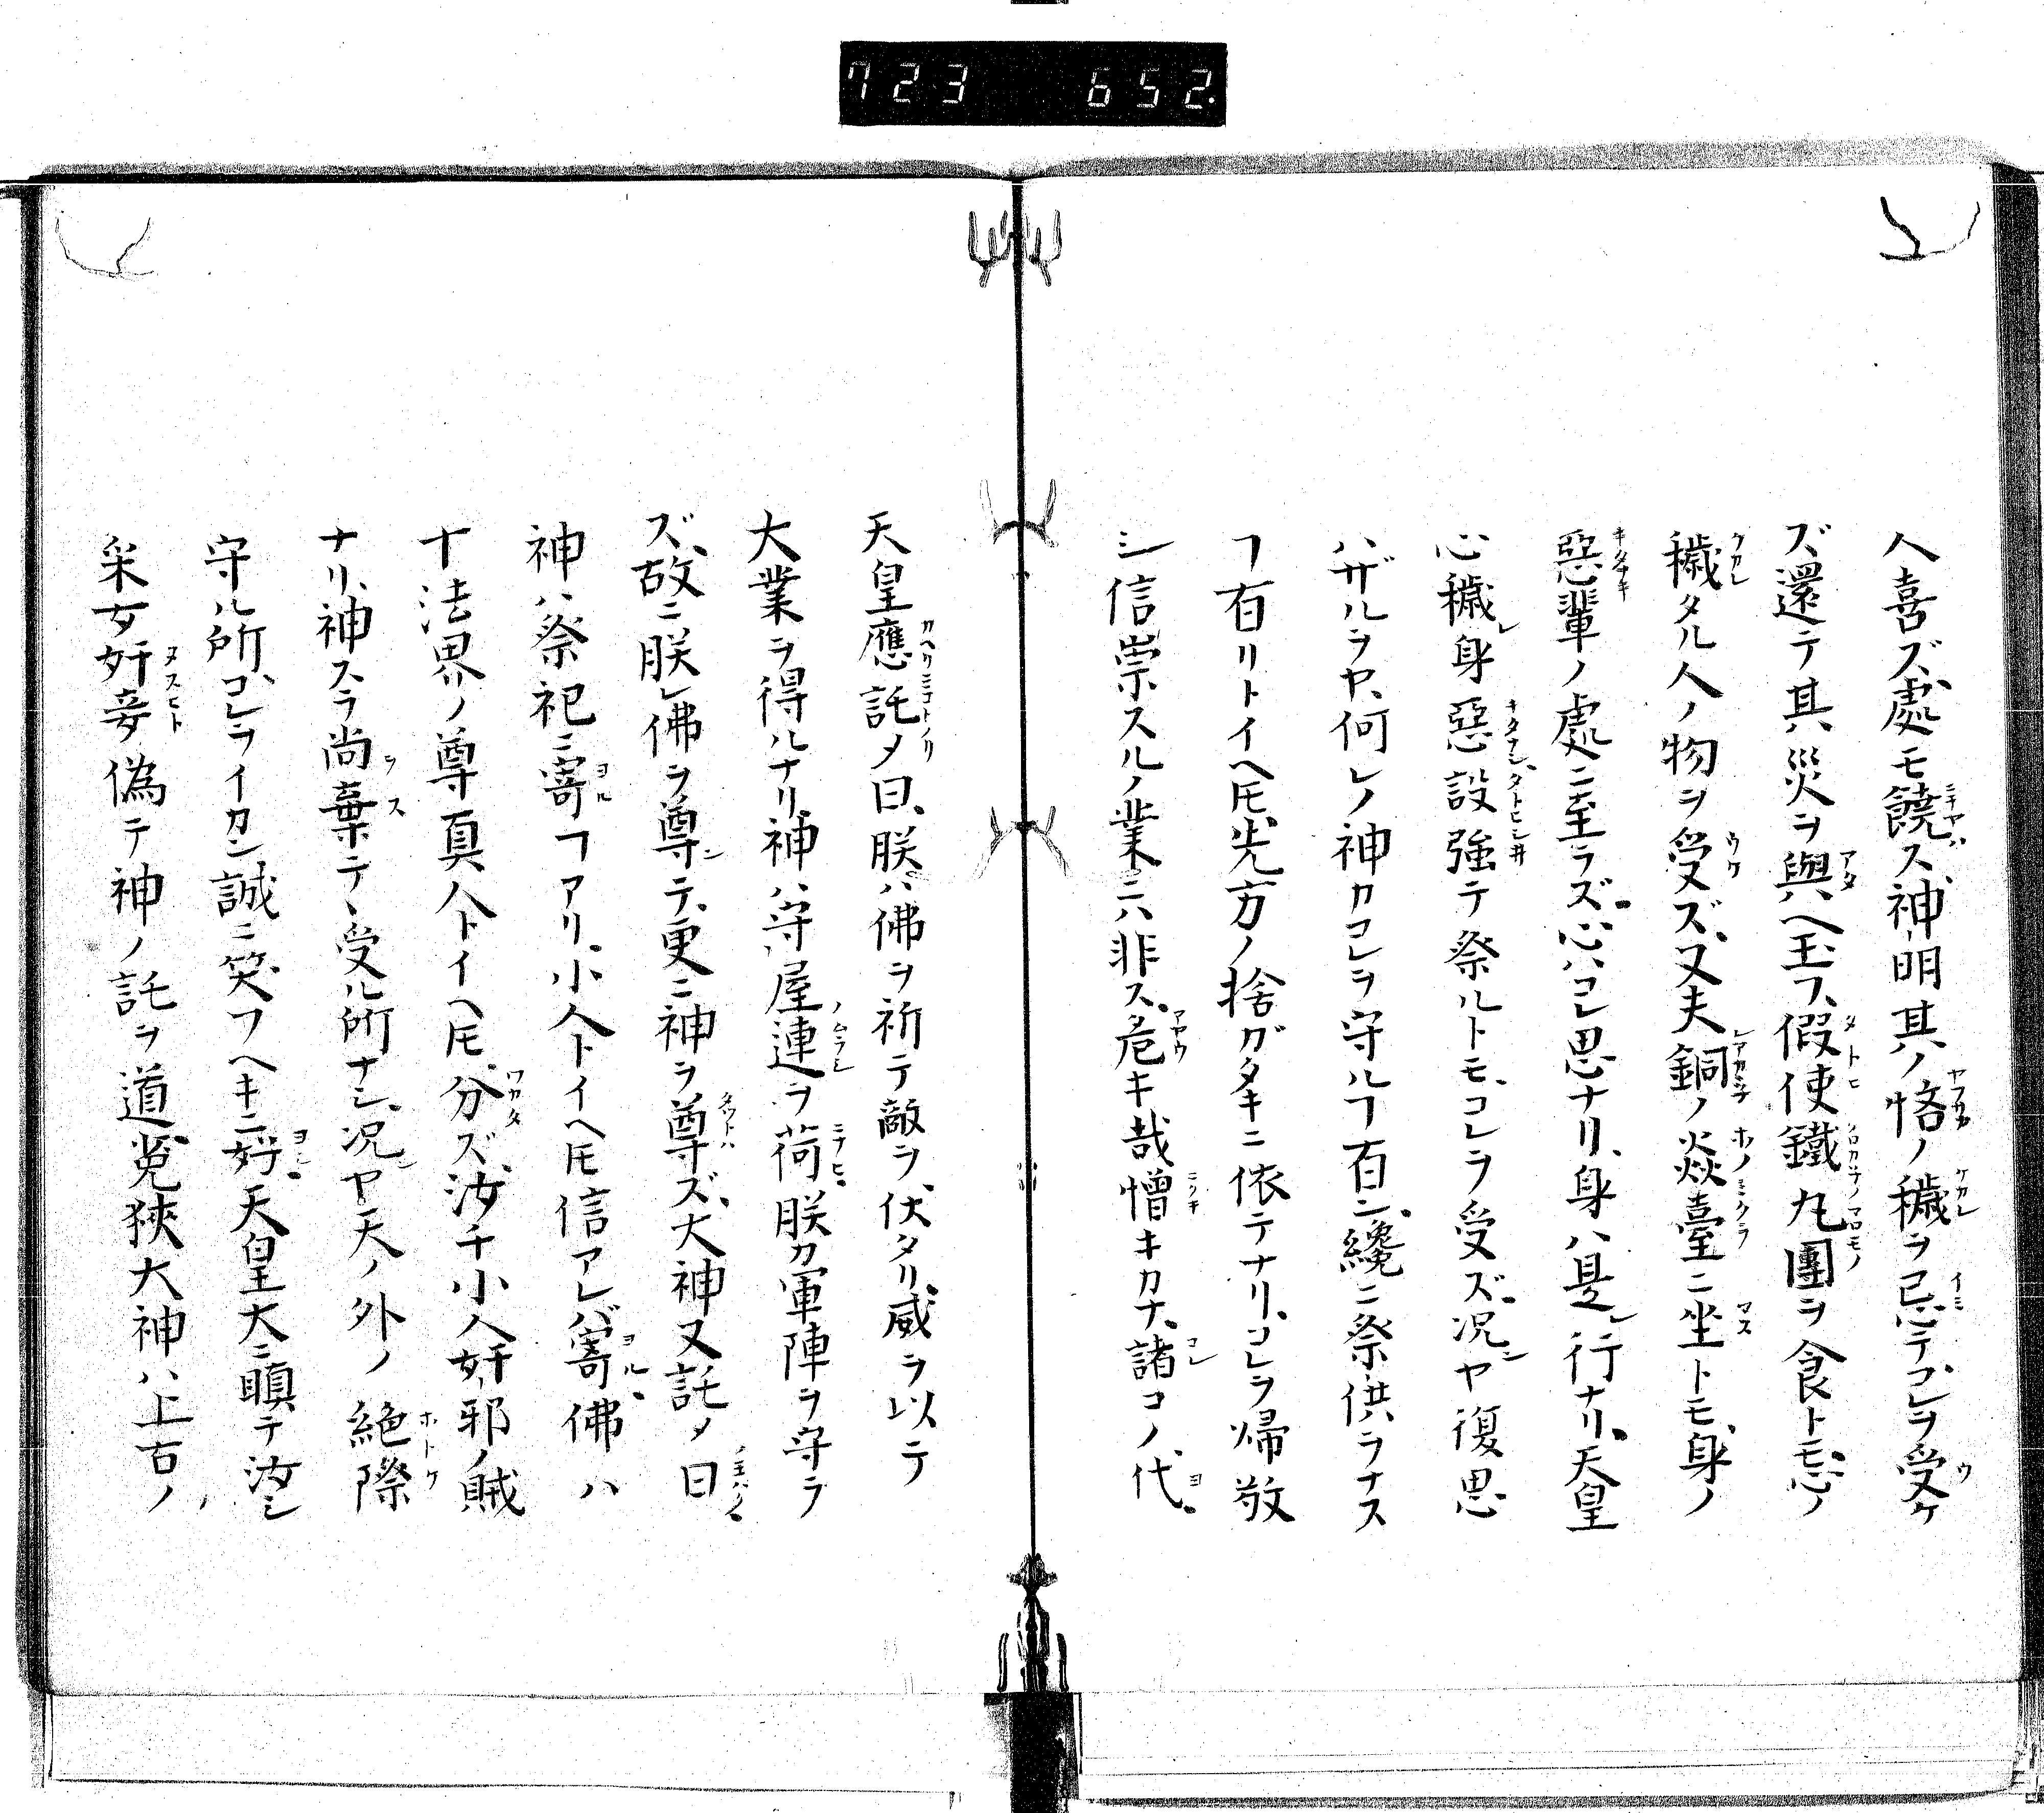 723 652.
人喜ズ、處モ饒ハス、神明其ノ悋ノ穢ヲ忌テ、コレヲ受ケ
ズ、還テ其災ヲ與ヘ玉フ、假使鐵丸團ヲ食トモ、心ノ
穢タル人ノ物ヲ受ズ、又夫銅ノ焱臺ニ坐トモ、身ノ
惡輩ノ處ニ至ラズ、心ハコレ思ナリ、身ハ是レ行ナリ、天皇
心穢レ身惡設強テ祭ルトモ、コレヲ受ズ、况ヤ復思
ハザルヲヤ、何レノ神カコレヲ守ルヿ有ン、纔ニ祭供ヲナス
ヿ有リトイヘ𪜈、先方ノ捨ガタキニ依テナリ、コレヲ帰敬
シ信崇スルノ業ニハ非ス、危キ哉憎キカナ、諸コノ代
天皇應託メ曰、朕ハ佛ヲ祈テ敵ヲ伏タリ、威ヲ以テ
大業ヲ得ルナリ、神ハ守屋連ヲ荷朕カ軍陣ヲ守ラ
ズ、故ニ朕レ佛ヲ尊テ、更ニ神ヲ尊ズ、大神又託メ曰
神ハ祭祀ニ寄ヿアリ、小人トイヘ𪜈信アレバ寄、佛ハ
十法界ノ尊真人トイヘ𪜈、分ズ、汝チ小人奸邪ノ賊
ナリ、神スラ尚棄テヽ受ル所ナシ、况ヤ天ノ外ノ絶際
守ル所、コレヲイカン誠ニ笑フヘキニ好、天皇大ニ瞋テ汝シ
采女奸妾偽テ神ノ託ヲ道、菟狹大神ハ上古ノ